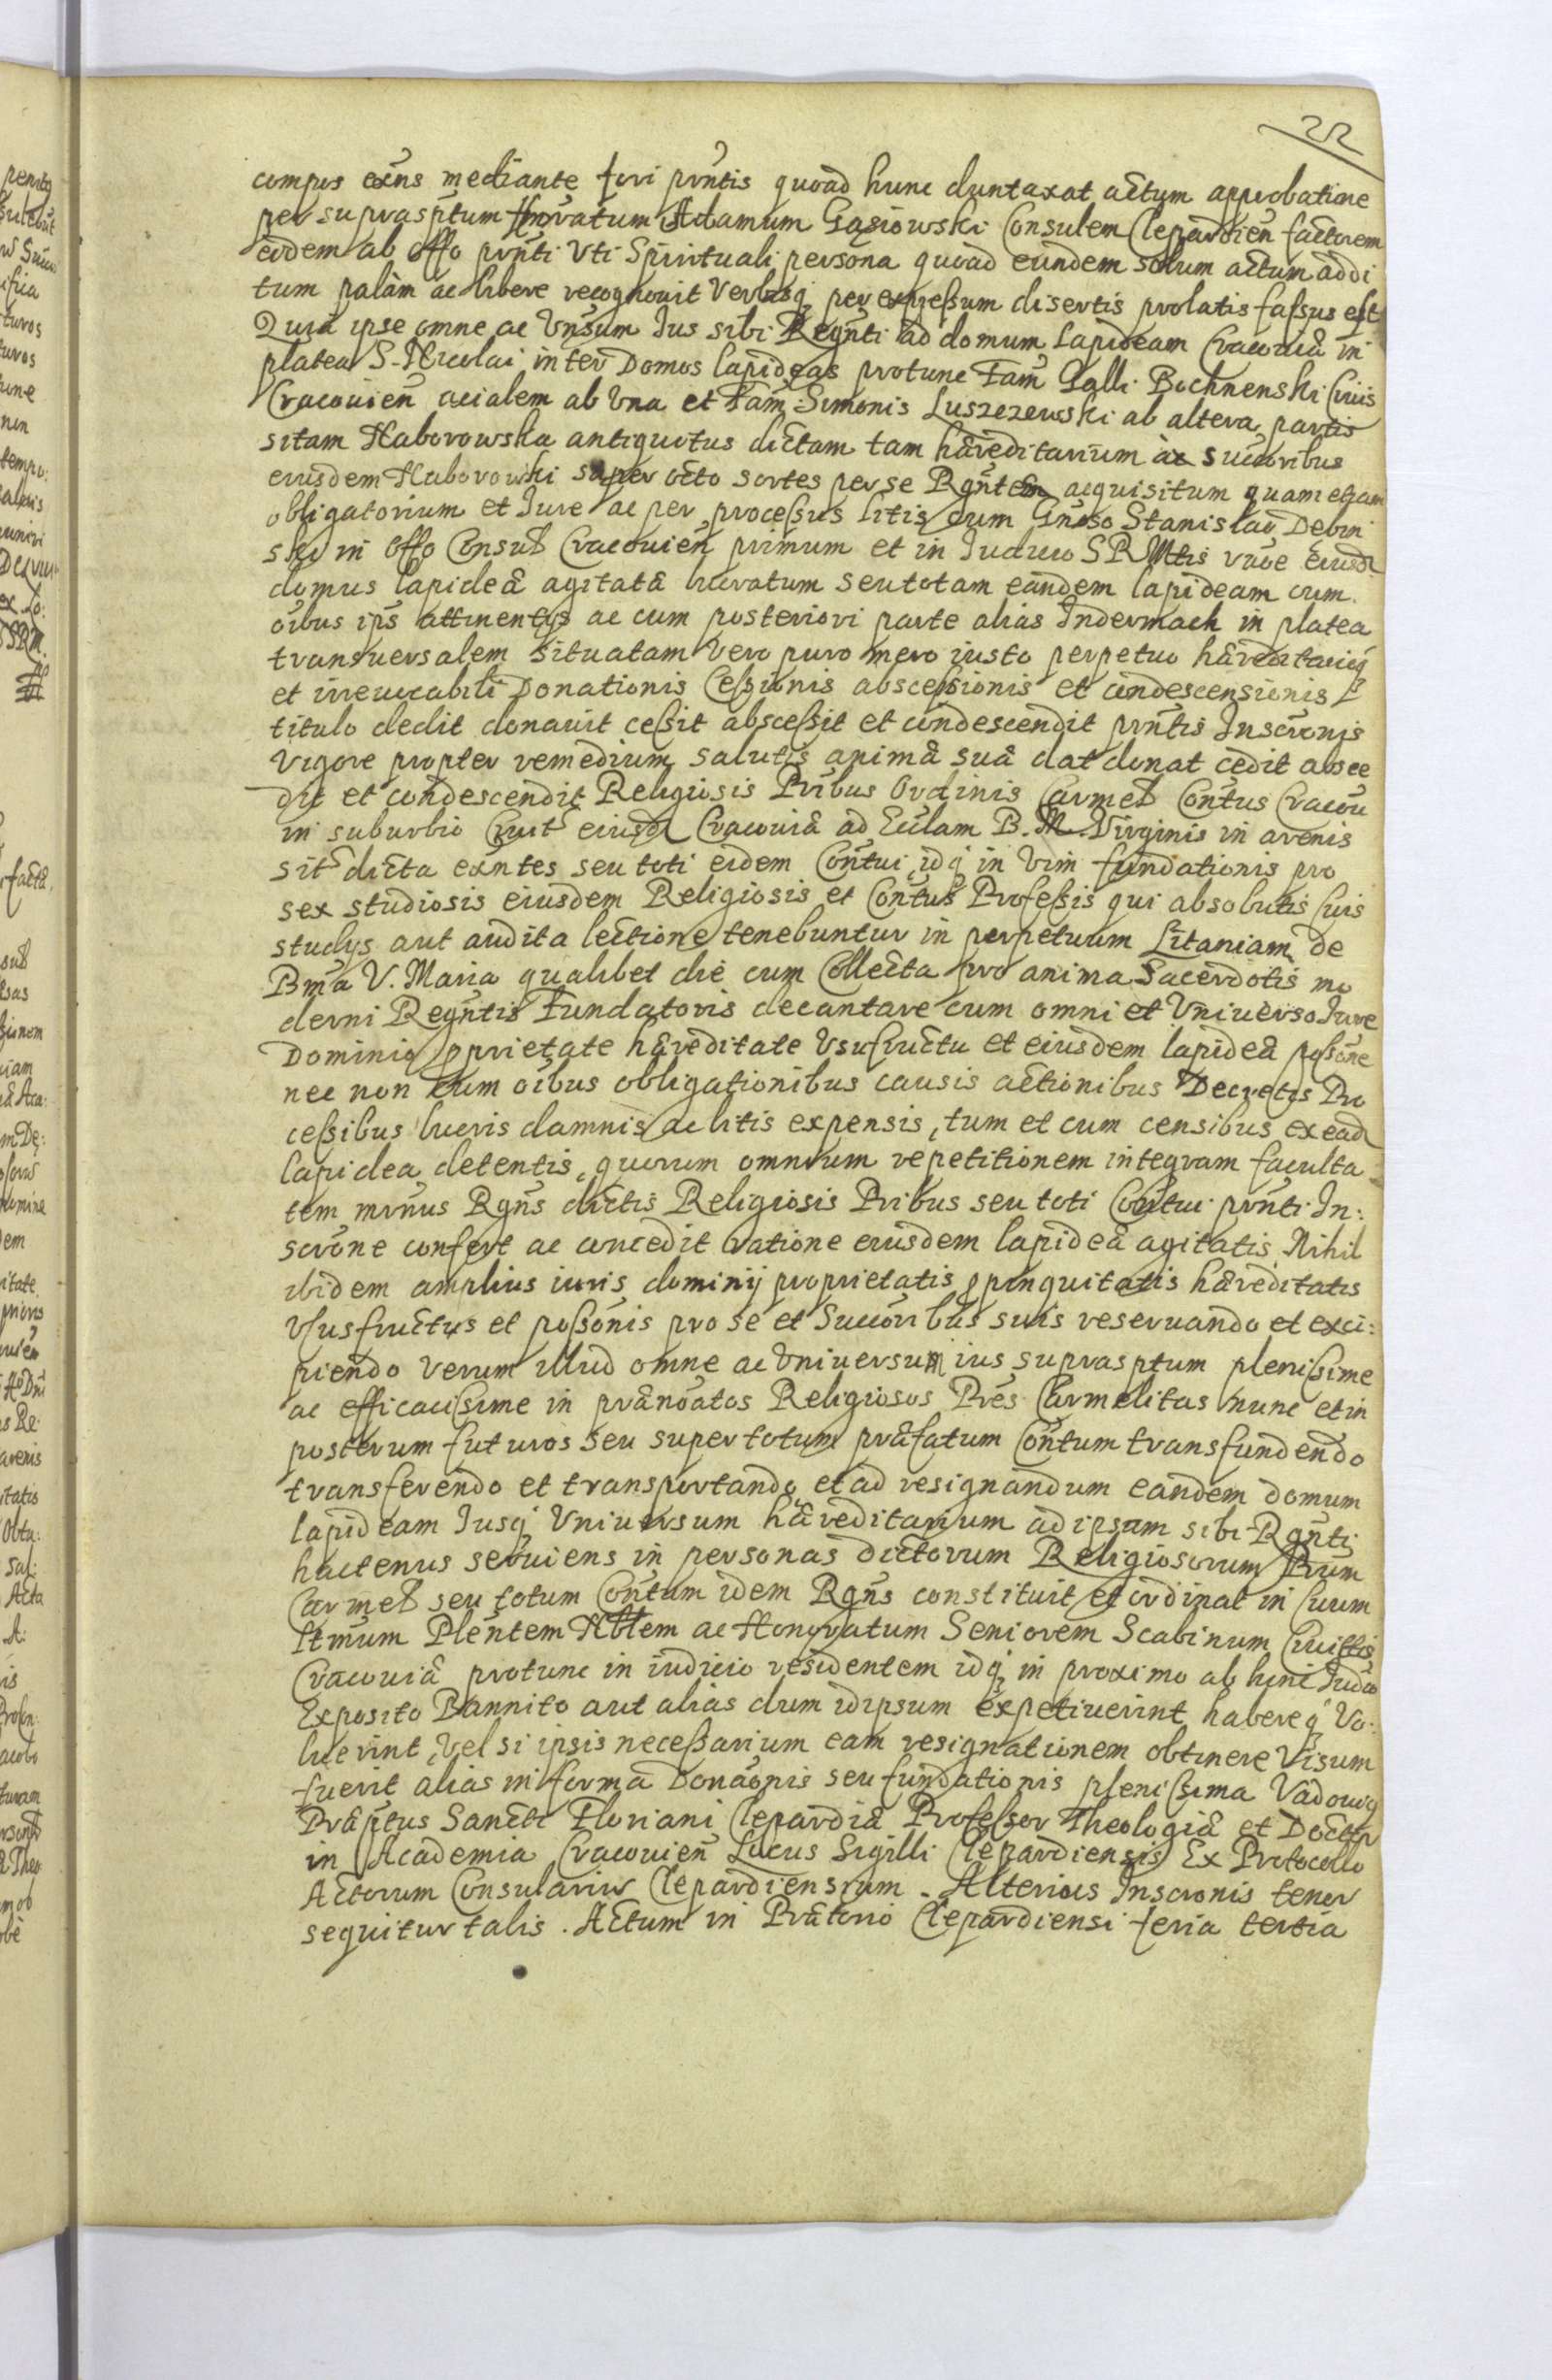 22
compos exñs mediante fori prñtis quoad hunc duntaxat actum approbatione
per suprasptum Honoratum Adamum Gąsiowski Consulem Clepardien factorem
eidem ab offo prñti Uti Spirituali persona quoad eundem solum actum addi
tum palàm ac libere recognouit Verbisq per expressum disertis prolatis fassus est
Quia ipse omne ac Vnsum Ius sibi Regnti ad domum Lapideam Cracouiæ in
platea S. Nicolai inter Domos lapideas protunc Fam Galli Bochnenski Ciuis
Cracouien acialem ab Vna et Fam Simonis Luszczewski ab altera partis
sitam Naborowska antiquitus dictam tam hæreditarium à Succoribus
eiusdem Naborowski super octo sortes per se Rgntem acquisitum quam etiam
obligatorium et Iure ac per processus litis cum Gñoso Stanislao Debin
ski in offo Consul Cracouien primum et in Iudicio SRMttis rãoe eiusd
domus lapideæ agitatæ lucratum seu totam eandem lapideam cum
oibus ips attinentijs ac cum posteriori parte alias Indermach in platea
transuersalem situatam Vero puro mero iusto perpetuo hæreditarioq
et irreuocabili Donationis Cessionis abscessionis et condescensionis
titulo dedit donauit cessit abscessit et condescendit prñtis Inscronis
Vigore propter remedium salutis animæ suæ dat donat cedit absce
dit et condescendit Religiosis Pribus Ordinis Carmel Contus Cracou
in suburbio Ciuit eiusd Cracouiæ ad Eccłam B. M. Virginis in arenis
sit dicta exntes seu toti eidem Contui idq in Vim fundationis pro
sex studiosis eiusdem Religiosis et Contus Professis qui absolutis suis
studys aut audita lectione tenebuntur in perpetuum Litaniam de
Bma V. Maria qualibet die cum Collecta pro anima Sacerdotis mo
derni Regntis Fundatoris decantare cum omni et Vniuerso Iure
Dominio pprietate hæreditate Vsufructu et eiusdem lapideæ possone
nec non cum oibus obligationibus causis actionibus Decretis Pro
cessibus lucris damnis ac litis expensis, tum et cum censibus ex ead
lapidea detentis, quorum omnium repetitionem integram faculta
tem minus Rgñs dictis Religiosis Pribus seu toti Contui prñti In:
scrone confert ac concedit ratione eiusdem lapideæ agitatis Nihil
ibidem amplius iuris dominij proprietatis ppinquitatis hæreditatis
Vsusfructus et possonis pro se et Succoribus suis reseruando et exci:
piendo Verum illud omne ac Vniuersum ius suprasptum plenissime
ac efficacissime in prænoatos Religiosos Pres Carmelitas nunc et in
posterum futuros seu super totum præfatum Contum transfundendo
transferendo et transportando et ad resignandum eandem domum
lapideam Iusq Vniuersum hæreditarium ad ipsam sibi Rgnti
hactenus seruiens in personas dictorum Religiosorum Prum
Carmel seu totum Contum idem Rgñs constituit et ordinat in suum
ltmum Plentem Nblem ac Honoratum Seniorem Scabinum Ciuittis
Cracouiæ protunc in iudicio residentem idq in proximo ab hinc Iudcio
Exposito Bannito aut alias dum idipsum expetiuerint habereq Vo:
luerint, Vel si ipsis necessarium eam resignationem obtinere Visum
fuerit alias in forma Donãonis seu fundationis plenissima Vadouig
Præptus Sancti Floriani Clepardiæ Professor Theologiæ et Doctor
in Academia Cracouien Lucus Sigilli Clepardiensis Ex Protocollo
Actorum Consulariu Clepardiensium. Alterius Inscronis tenor
sequitur talis. Actum in Prætorio Clepardiensi feria tertia